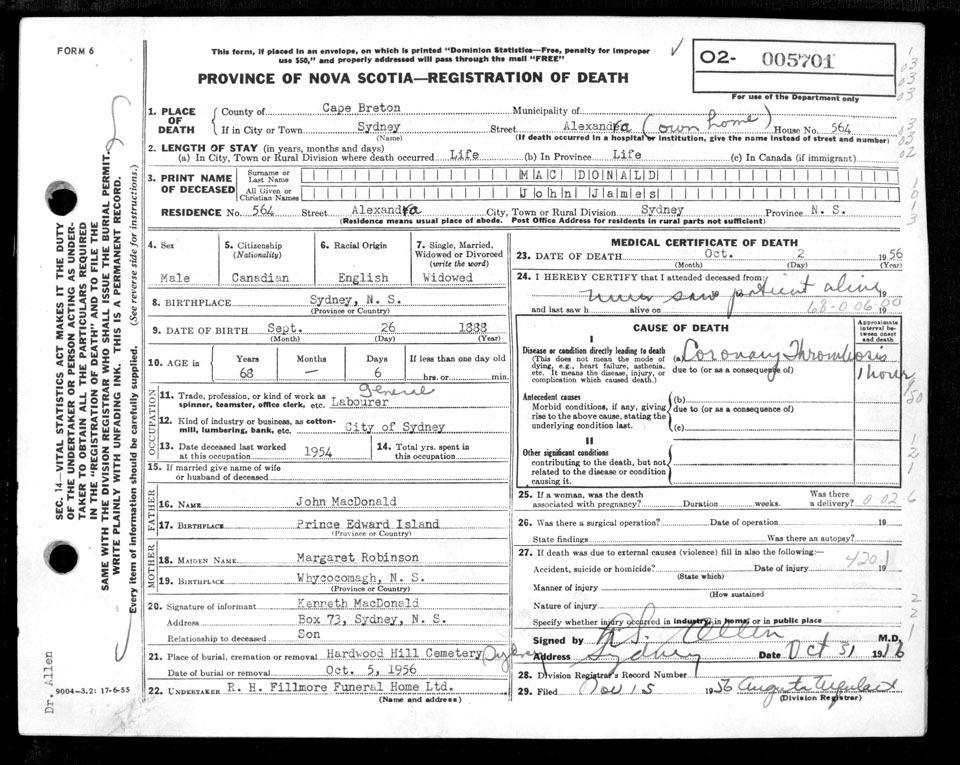 FORM 6
This form, if placed in an envelope, on which is printed "Dominion Statistics—Free, penalty for improper
use $50," and properly addressed will pass through the mail "FREE"
PROVINCE OF NOVA SCOTIA—REGISTRATION OF DEATH
02- 005701
For use of the Department only
1. PLACE OF DEATH
County of Cape Breton Municipality of
If in City or Town Sydney Street Alexandra (own home) House No. 564
(Name) (If death occurred in a hospital or institution, give the name instead of street and number)
2. LENGTH OF STAY (in years, months and days)
(a) In City, Town or Rural Division where death occurred Life (b) In Province Life (c) In Canada (if immigrant)
3. PRINT NAME OF DECEASED
Surname or Last Name MAC DONALD
All Given or Christian Names John James
RESIDENCE No. 564 Street Alexandra City, Town or Rural Division Sydney Province N. S.
(Residence means usual place of abode. Post Office Address for residents in rural parts not sufficient)
4. Sex 5. Citizenship 6. Racial Origin 7. Single, Married,
(Nationality) Widowed or Divorced
(write the word)
Male Canadian English Widowed
8. BIRTHPLACE Sydney, N. S.
(Province or Country)
9. DATE OF BIRTH Sept. 26 1888
(Month) (Day) (Year)
10. AGE in Years Months Days If less than one day old
68 — 6 hrs. or min.
OCCUPATION
11. Trade, profession, or kind of work as general
spinner, teamster, office clerk, etc. Labourer
12. Kind of industry or business, as cotton-
mill, lumbering, bank, etc. City of Sydney
13. Date deceased last worked at this occupation 1954
14. Total yrs. spent in this occupation
15. If married give name of wife
or husband of deceased
FATHER
16. NAME John MacDonald
17. BIRTHPLACE Prince Edward Island
(Province or Country)
MOTHER
18. MAIDEN NAME Margaret Robinson
19. BIRTHPLACE Whycocomagh, N. S.
(Province or Country)
20. Signature of informant Kenneth MacDonald
Address Box 73, Sydney, N. S.
Relationship to deceased Son
21. Place of burial, cremation or removal Hardwood Hill Cemetery, Sydney
Date of burial or removal Oct. 5, 1956
22. UNDERTAKER R. H. Fillmore Funeral Home Ltd.
(Name and address)
MEDICAL CERTIFICATE OF DEATH
23. DATE OF DEATH Oct. 2 1956
(Month) (Day) (Year)
24. I HEREBY CERTIFY that I attended deceased from:
never saw patient alive 19
and last saw h alive on 68-0 06 80 19
CAUSE OF DEATH
Approximate interval between onset and death
I
Disease or condition directly leading to death
(This does not mean the mode of
dying, e.g., heart failure, asthenia,
etc. It means the disease, injury, or
complication which caused death.)
(a) Coronary Thrombosis
due to (or as a consequence of) 1 hour
Antecedent causes
Morbid conditions, if any, giving
rise to the above cause, stating the
underlying condition last.
(b)
due to (or as a consequence of)
(c)
II
Other significant conditions
contributing to the death, but not
related to the disease or condition
causing it.
25. If a woman, was the death Was there
associated with pregnancy? Duration weeks. a delivery? 0 02 6
26. Was there a surgical operation? Date of operation 19
State findings Was there an autopsy?
27. If death was due to external causes (violence) fill in also the following:—
Accident, suicide or homicide? Date of injury 19 420.1
(State which)
Manner of injury
(How sustained
Nature of injury
Specify whether injury occurred in industry, in home, or in public place
Signed by Allen M.D.
Address Sydney Date Oct 31 1956
28. Division Registrar's Record Number
29. Filed Nov 15 1956
(Division Registrar)
SEC. 14—VITAL STATISTICS ACT MAKES IT THE DUTY
OF THE UNDERTAKER OR PERSON ACTING AS UNDER-
TAKER TO OBTAIN ALL THE PARTICULARS REQUIRED
IN THE "REGISTRATION OF DEATH" AND TO FILE THE
SAME WITH THE DIVISION REGISTRAR WHO SHALL ISSUE THE BURIAL PERMIT.
WRITE PLAINLY WITH UNFADING INK. THIS IS A PERMANENT RECORD.
Every item of information should be carefully supplied. (See reverse side for instructions.)
Dr. Allen
9004—3.2: 17-6-55